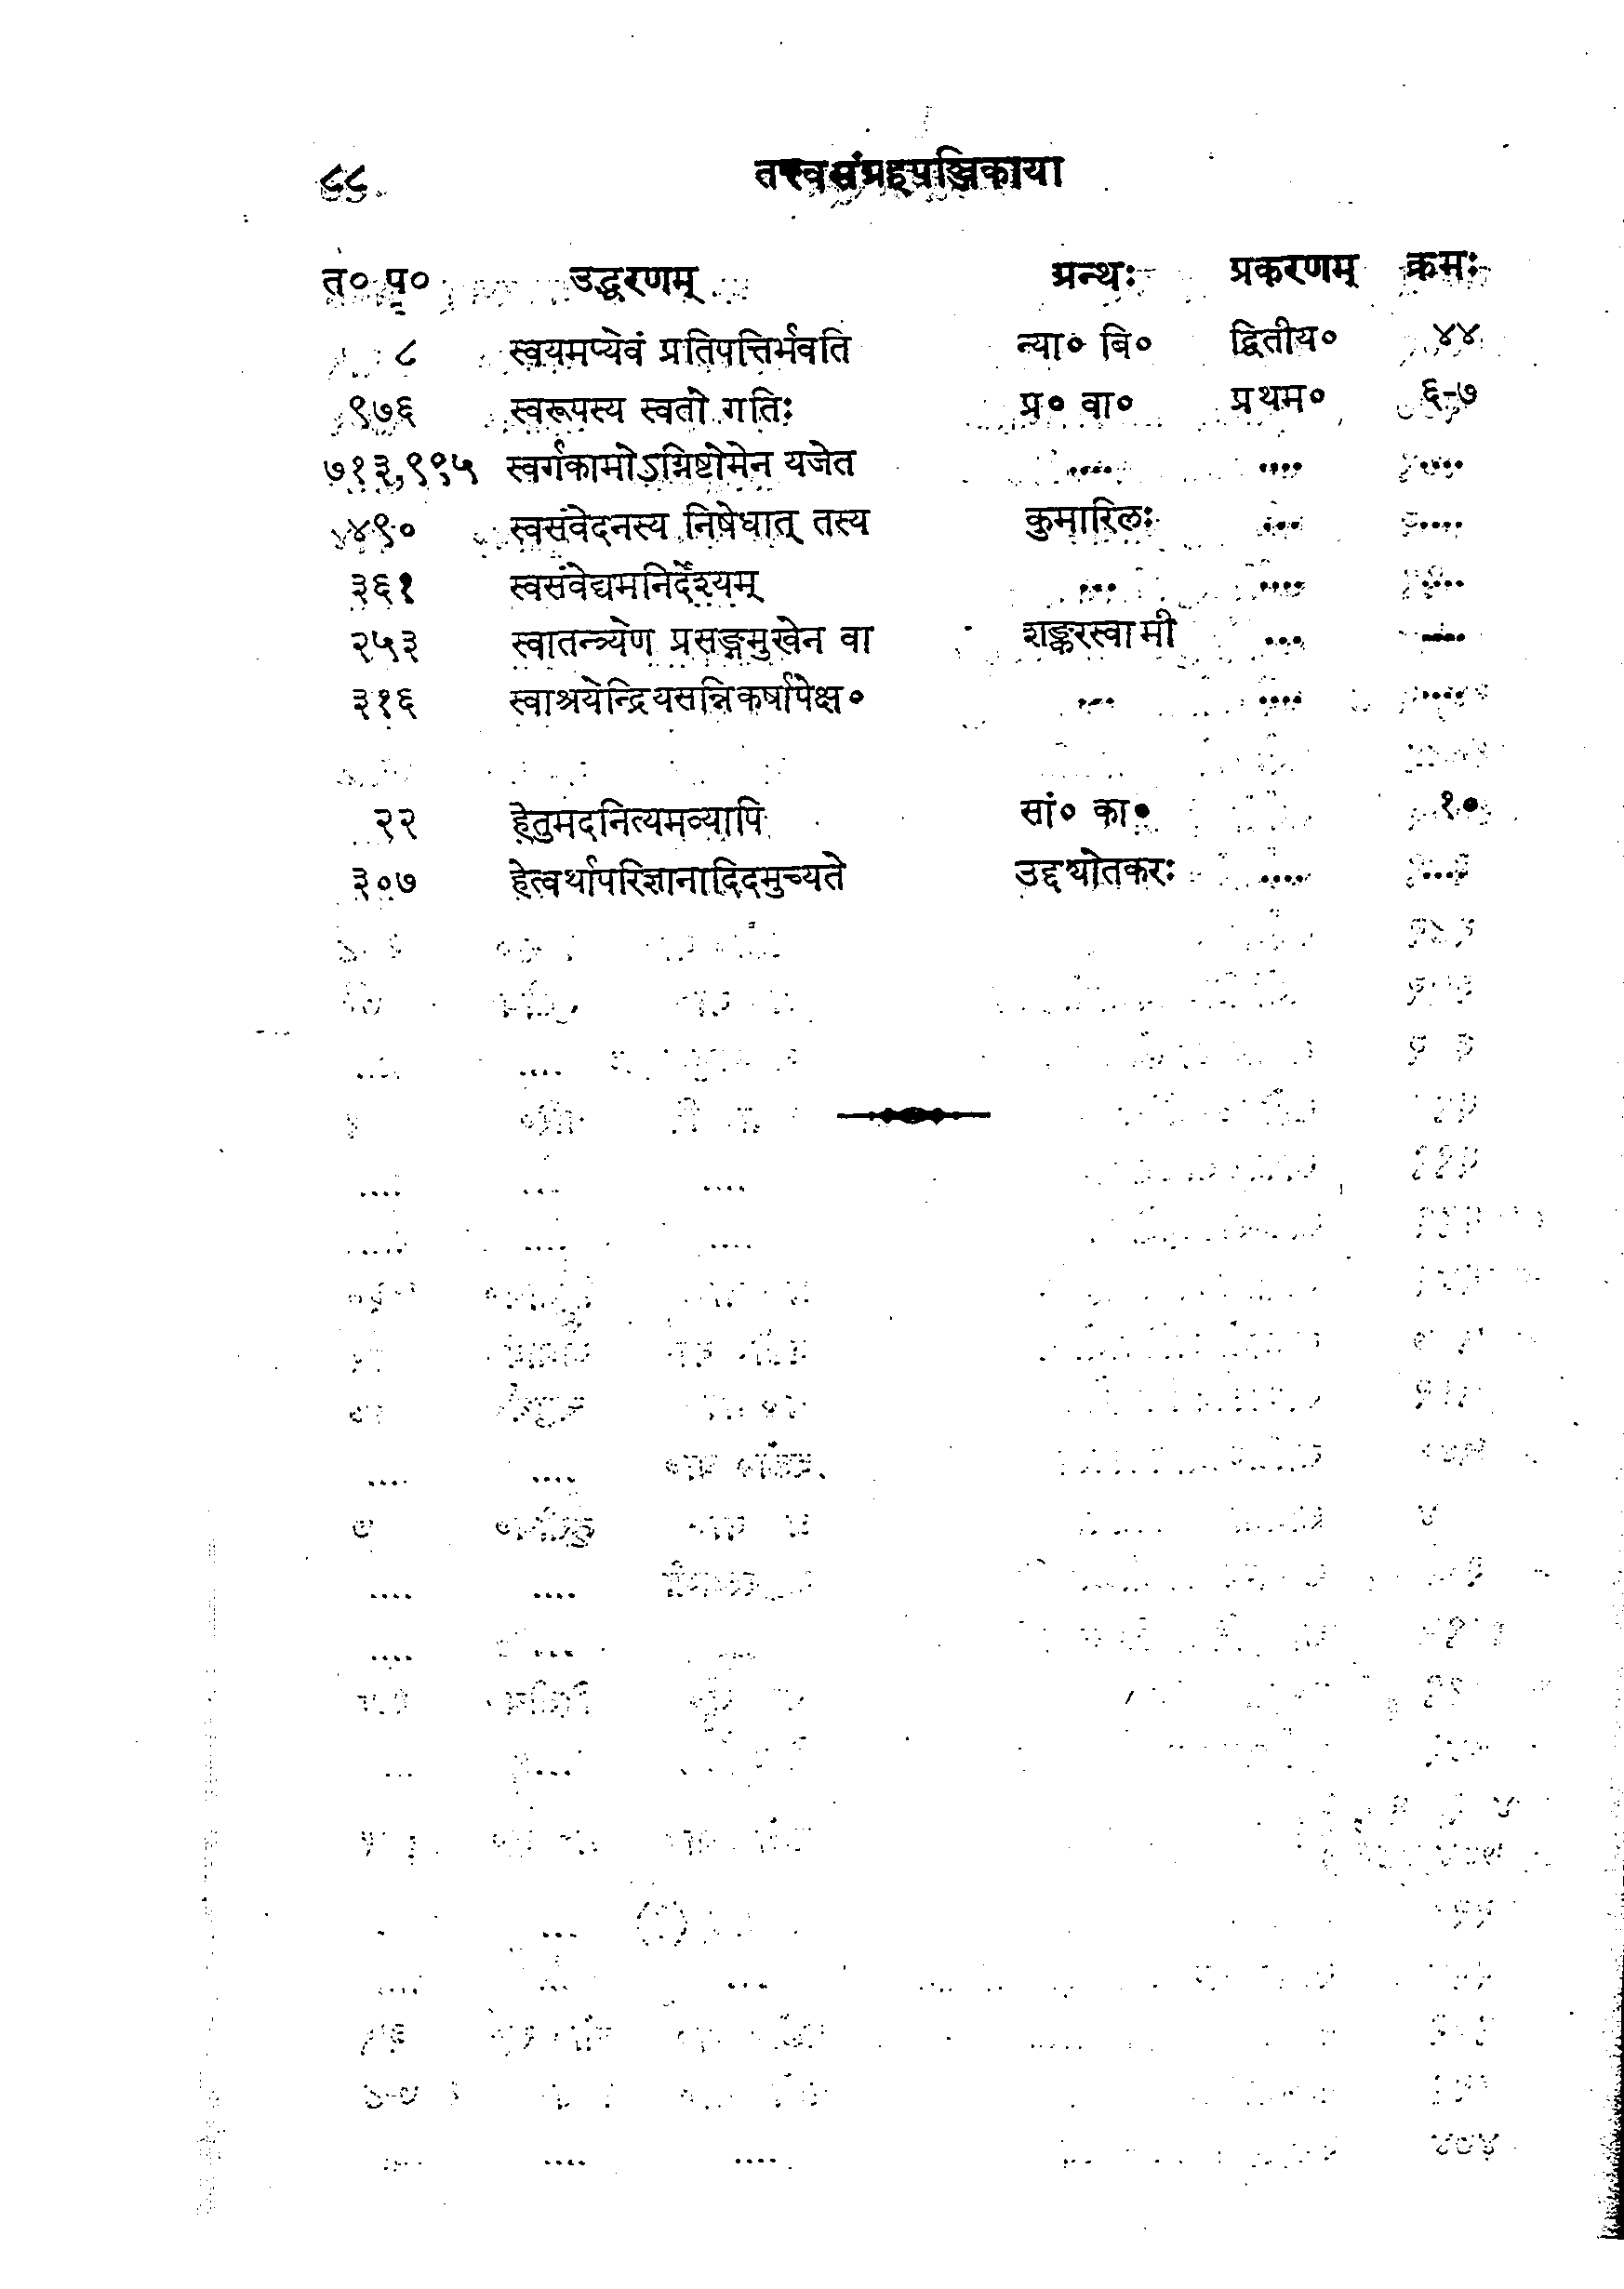 ८८ तत्त्वसंग्रहपञ्जिकाया
त० प० उद्धरणम् ग्रन्थः प्रकरणम् क्रमः
८ स्वयमप्येवं प्रतिपत्तिर्भवति न्या० बि० द्वितीय० ४४
९७६ स्वरूपस्य स्वतो गतिः प्र० वा० प्रथम० ६-७
७१३,९९५ स्वर्गकामोऽग्निष्टोमेन यजेत .... .... ....
४९० स्वसंवेदनस्य निषेधात् तस्य कुमारिलः ... ....
३६१ स्वसंवेद्यमनिर्देश्यम् ... .... ....
२५३ स्वातन्त्र्येण प्रसङ्गमुखेन वा शङ्करस्वामी ... ....
३१६ स्वाश्रयेन्द्रियसन्निकर्षापेक्ष० ... .... ....
२२ हेतुमदनित्यमव्यापि सां० का० १०
३०७ हेत्वर्थापरिज्ञानादिदमुच्यते उद्द्योतकरः .... ....